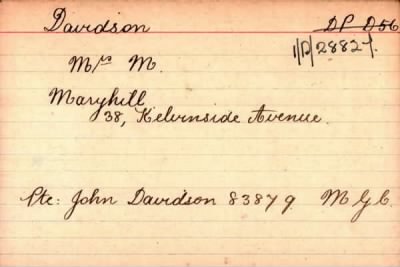 Davidson DP D56
1/D/28827.
Mrs M.
Maryhill
38, Kelvinside Avenue.
Pte: John Davidson 83879. M G C.